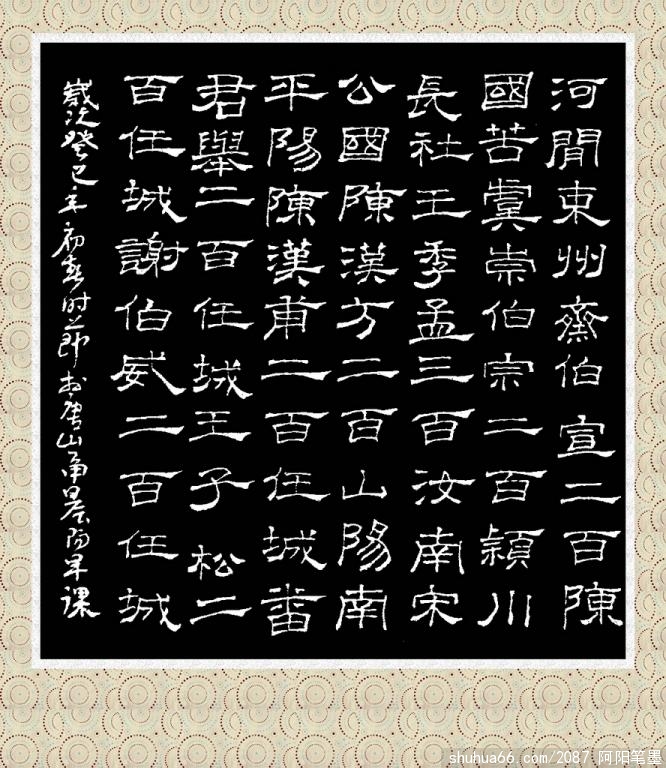 河閒東州齋伯宣二百陳
國苦虞崇伯宗二百潁川
長社王季孟三百汝南宋
公國陳漢方二百山陽南
平陽陳漢甫二百任城番
君舉二百任城王子松二
百任城謝伯威二百任城
歲次癸巳年初春时节於唐山阳早課
shuhua66.com/2087 阿阳笔墨